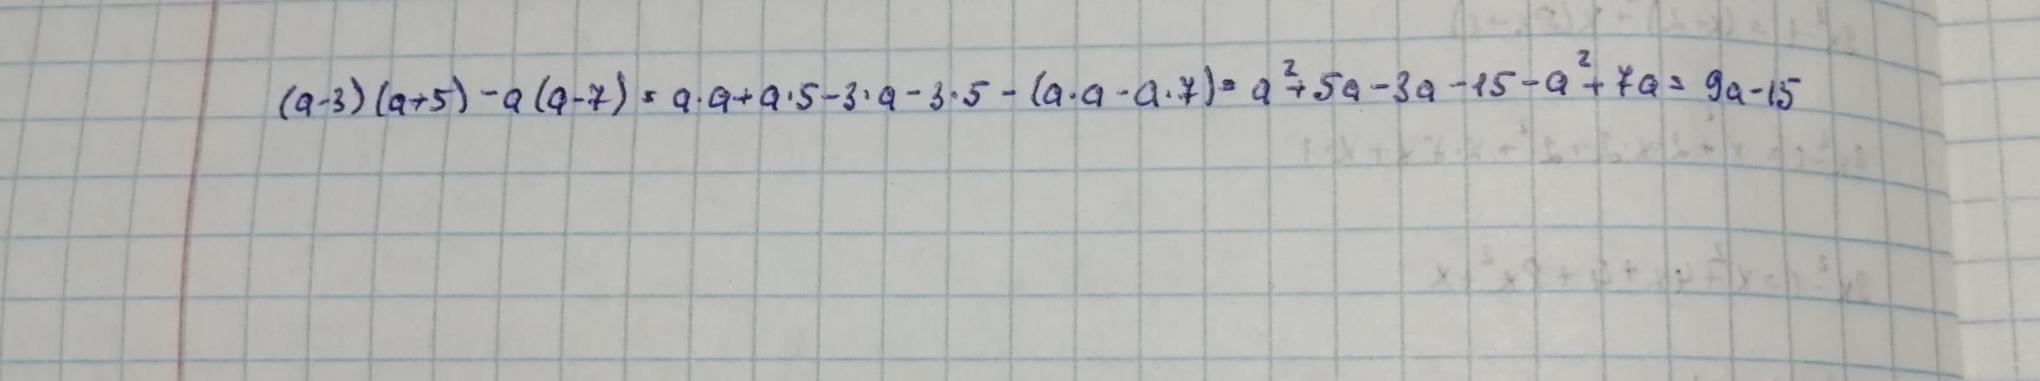 (a-3)(a+5)-a(a-7)=a·a+a·5-3·a-3·5-(a·a-a·7)=a²+5a-3a-15-a²+7a=9a-15